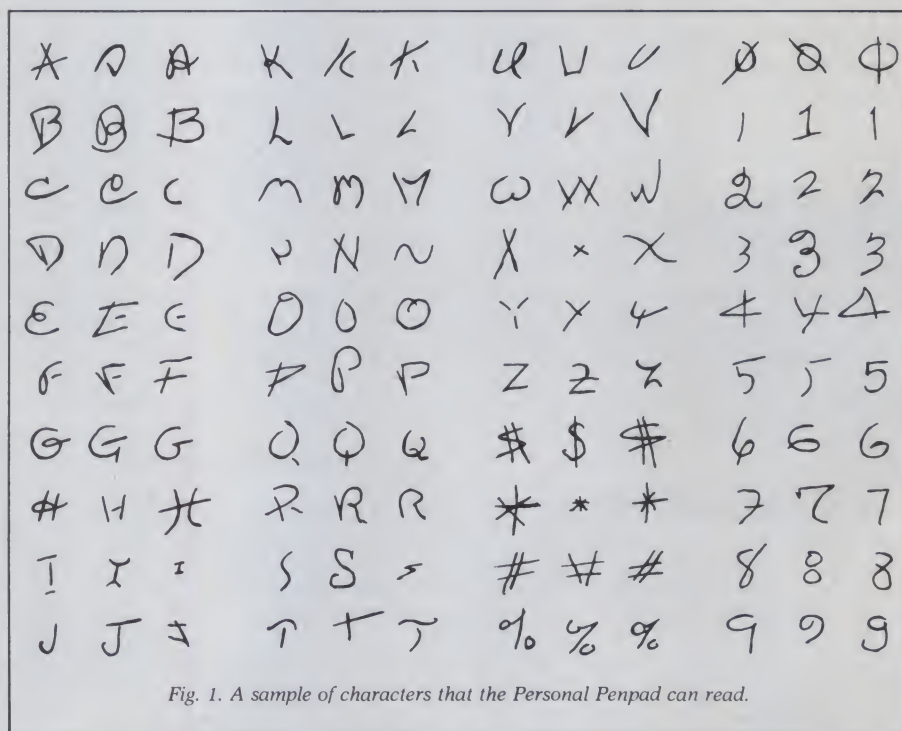 A A A K K K U U U 0 0 0
B B B L L L V V V 1 1 1
C C C M M M W W W 2 2 2
D D D N N N X X X 3 3 3
E E E O O O Y Y Y 4 4 4
F F F P P P Z Z Z 5 5 5
G G G Q Q Q $ $ $ 6 6 6
H H H R R R * * * 7 7 7
I I I S S S # # # 8 8 8
J J J T T T % % % 9 9 9
Fig. 1. A sample of characters that the Personal Penpad can read.